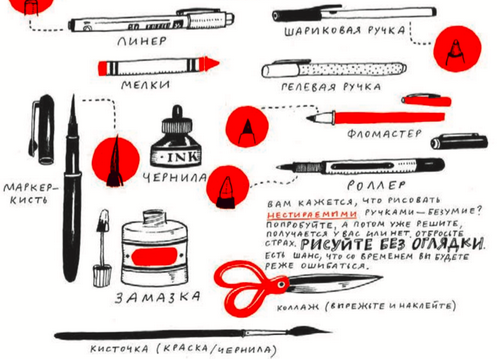 ЛИНЕР
ШАРИКОВАЯ РУЧКА
МЕЛКИ
ГЕЛЕВАЯ РУЧКА
ФЛОМАСТЕР
INK
МАРКЕР-
КИСТЬ
ЧЕРНИЛА
РОЛЛЕР
ВАМ КАЖЕТСЯ, ЧТО РИСОВАТЬ
НЕСТИРАЕМЫМИ РУЧКАМИ — БЕЗУМИЕ?
ПОПРОБУЙТЕ, А ПОТОМ УЖЕ РЕШИТЕ,
ПОЛУЧАЕТСЯ У ВАС ИЛИ НЕТ. ОТБРОСЬТЕ
СТРАХ. РИСУЙТЕ БЕЗ ОГЛЯДКИ.
ЕСТЬ ШАНС, ЧТО СО ВРЕМЕНЕМ ВЫ БУДЕТЕ
РЕЖЕ ОШИБАТЬСЯ.
ЗАМАЗКА
КОЛЛАЖ (ВЫРЕЖЬТЕ И НАКЛЕЙТЕ)
КИСТОЧКА (КРАСКА/ЧЕРНИЛА)